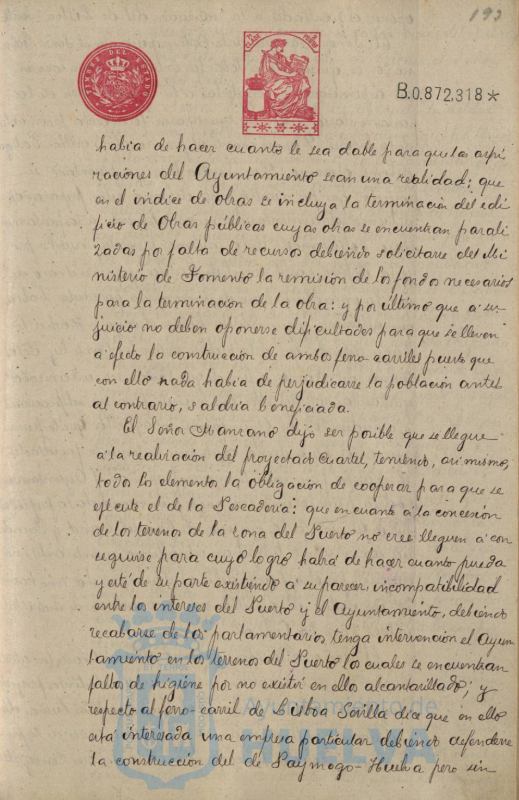 193
TIMBRE DEL ESTADO
B.0.872,318*
habia de hacer cuanto le sea dable para que las aspi
raciones del Ayuntamiento sean una realidad; que
en el indice de obras se incluya la terminación del edi
ficio de Obras públicas cuyas obras se encuentran parali
zadas por falta de recursos debiendo solicitarse del Mi
nisterio de Fomento la remisión de los fondos necesarios
para la terminación de la obra: y por último que a su
juicio no deben oponerse dificultades para que se lleven
a efecto la construcción de ambos ferro-carriles puesto que
con ello nada habia de perjudicarse la población antes
al contrario, saldria beneficiada.
El Señor Manzano dijo ser posible que se llegue
a la realización del proyectado Cuartel, teniendo, asi mismo,
todo lo elemento la obligación de cooperar para que se
ejecute el de la Pescaderia: que en cuanto a la concesión
de los terrenos de la zona del Puerto no cree lleguen a con
seguirse para cuyo logro habrá de hacer cuanto pueda
y esté de su parte existiendo a su parecer, incompatibilidad
entre los intereses del Puerto y el Ayuntamiento, debiendo
recabarse de los parlamentarios tenga intervención el Ayun
tamiento en los terrenos del Puerto los cuales se encuentran
faltos de higiéne por no existir en ellos alcantarillado; y
respecto al ferro-carril de Lisboa Sevilla dice que en ello
está interesada una empresa particular debiendo defenderse
la construcción del de Paymogo-Huelva pero sin
Ayuntamiento de
HUELVA